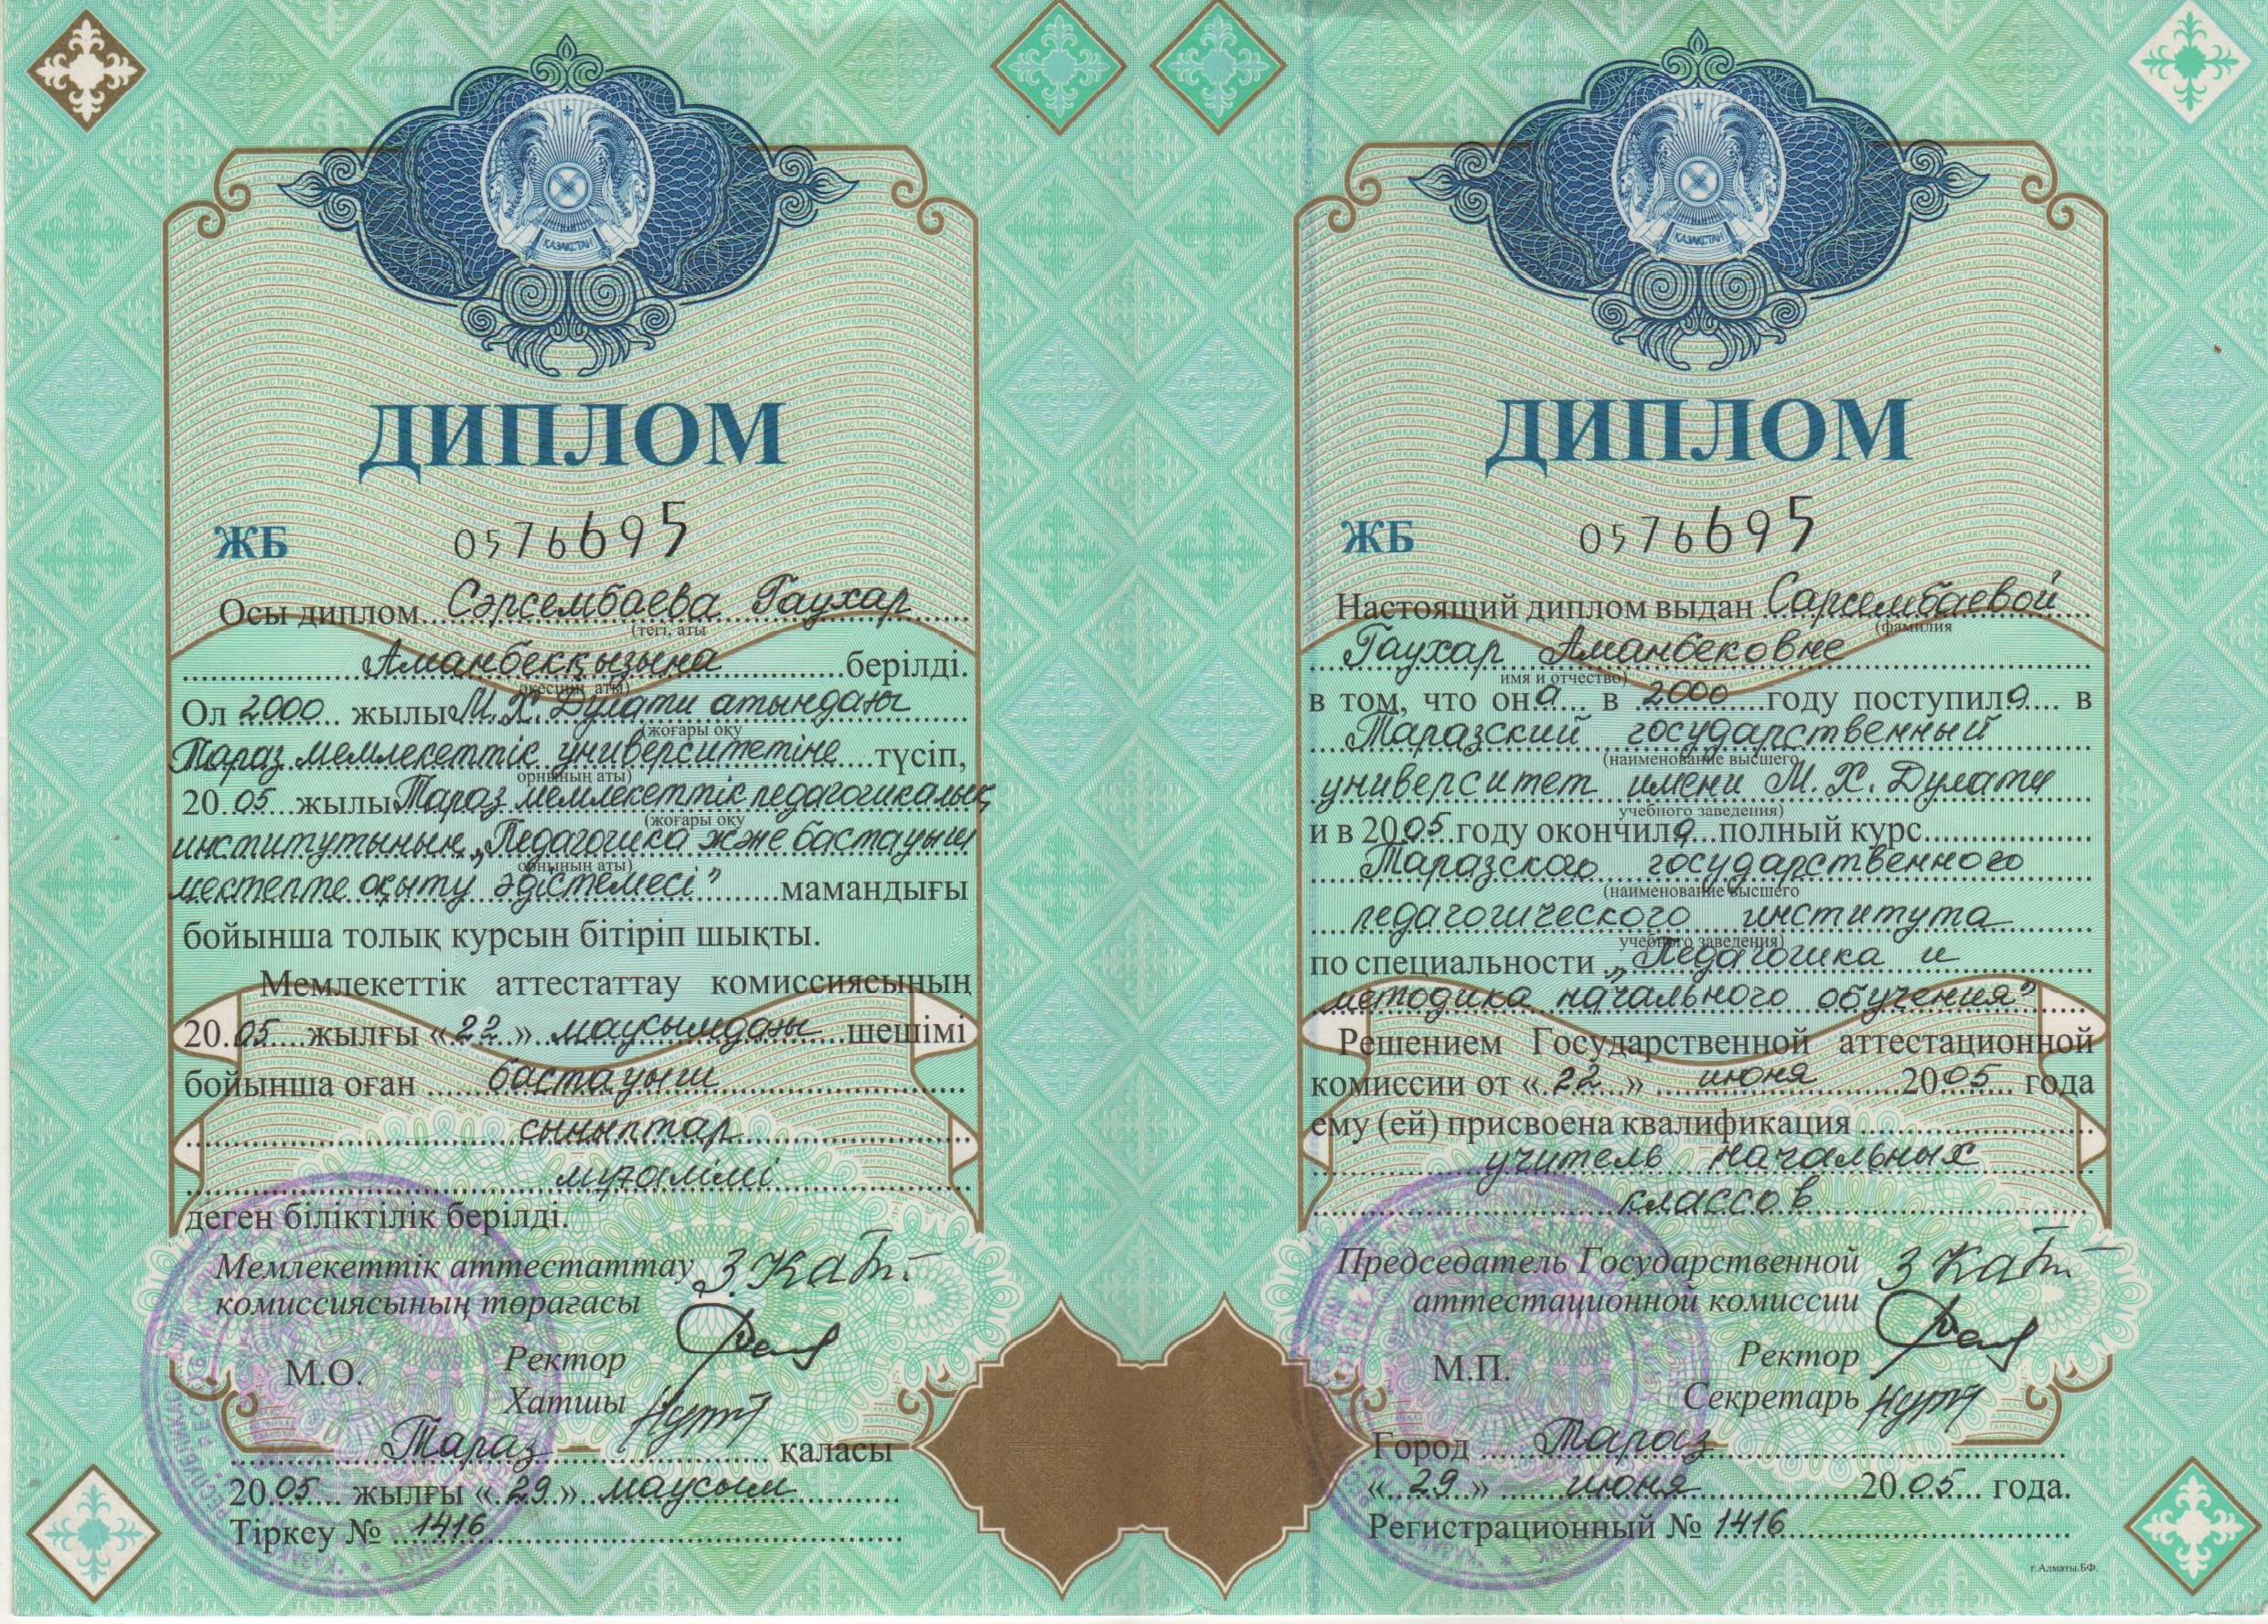 ҚАЗАҚСТАН
ДИПЛОМ
ЖБ 0576695
Осы диплом Сәрсембаева Гаухар
(тегі, аты
Аманбекқызына берілді.
әкесінің аты)
Ол 2000 жылы М.Х. Дулати атындағы
(жоғары оқу
Тараз мемлекеттік университетіне түсіп,
орнының аты)
2005 жылы Тараз мемлекеттік педагогикалық
(жоғары оқу
институтының „Педагогика және бастауыш
орнының аты)
мектепте оқыту әдістемесі” мамандығы
бойынша толық курсын бітіріп шықты.
Мемлекеттік аттестаттау комиссиясының
2005 жылғы «22» маусымдағы шешімі
бойынша оған бастауыш
сыныптар
мұғалімі
деген біліктілік берілді.
Мемлекеттік аттестаттау
комиссиясының төрағасы
Ректор
М.О.
Хатшы
Тараз қаласы
2005 жылғы «29» маусым
Тіркеу № 1416
ҚАЗАҚСТАН
ДИПЛОМ
ЖБ 0576695
Настоящий диплом выдан Сарсембаевой
(фамилия
Гаухар Аманбековне
имя и отчество)
в том, что она в 2000 году поступила в
Таразский государственный
(наименование высшего
университет имени М.Х. Дулати
учебного заведения)
и в 2005 году окончила полный курс
Таразского государственного
(наименование высшего
педагогического института
учебного заведения)
по специальности „Педагогика и
методика начального обучения”
Решением Государственной аттестационной
комиссии от «22» июня 2005 года
ему (ей) присвоена квалификация
учитель начальных
классов
Председатель Государственной
аттестационной комиссии
Ректор
М.П.
Секретарь
Город Тараз
«29» июня 2005 года.
Регистрационный № 1416
г.Алматы.БФ.